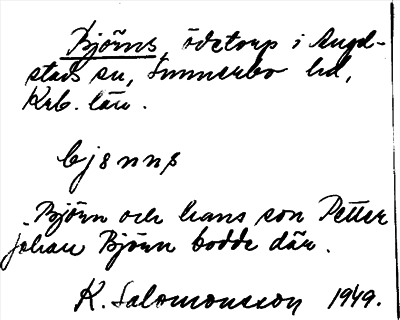 Björns, ödetorp i Angel-
stads sn, Sunnerbo hd,
Krb. län.
bjɞnns
Björn och hans son Petter
Johan Björn bodde där.
K. Salomonsson 1949.